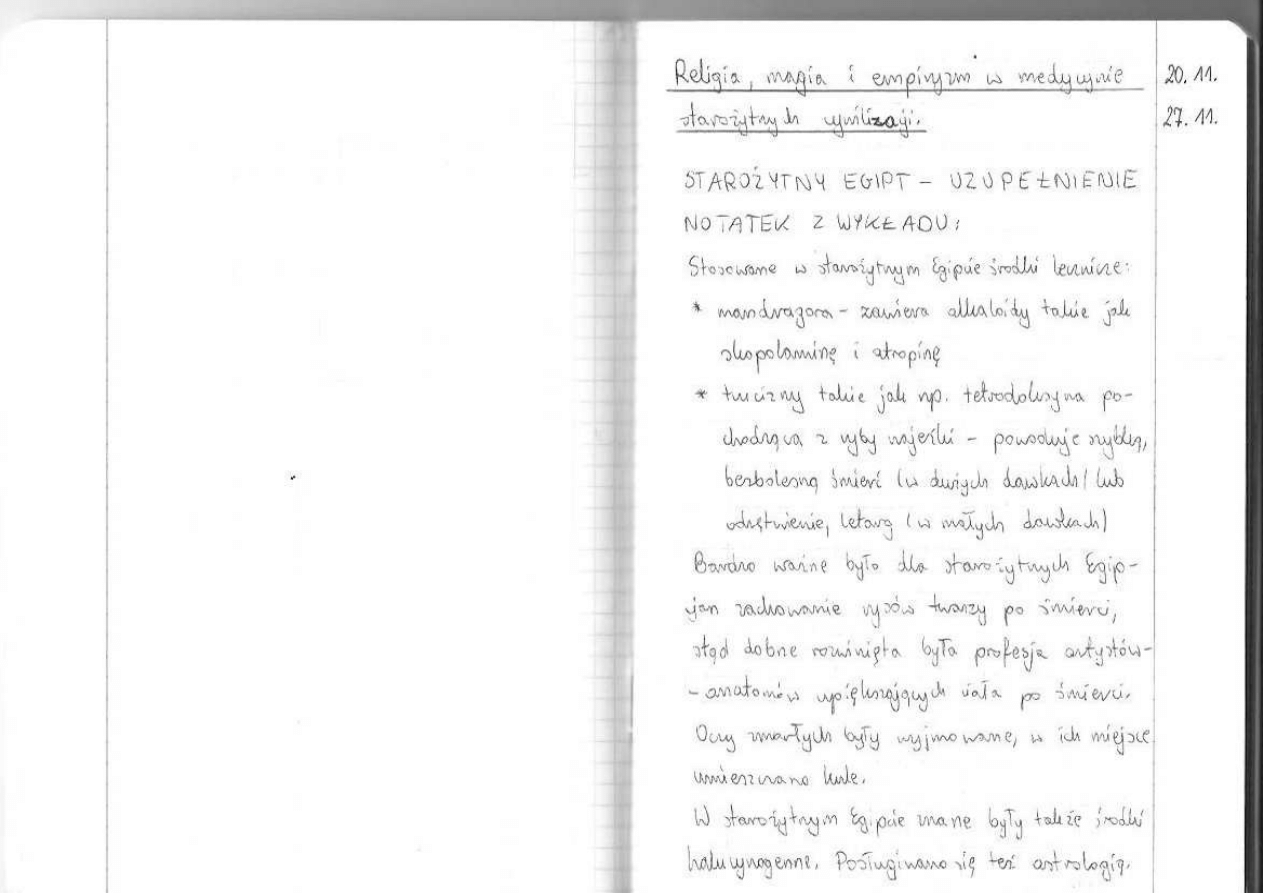 Religia, magia i empiryzm w medycynie 20. 11.
starożytnych cywilizacji. 27. 11.
STAROŻYTNY EGIPT – UZUPEŁNIENIE
NOTATEK Z WYKŁADU:
Stosowane w starożytnym Egipcie środki lecznicze:
* mandragora - zawiera alkaloidy takie jak
skopolaminę i atropinę
* trucizny takie jak np. tetrodoksyna po-
chodząca z ryby najeżki - powoduje szybką,
bezbolesną śmierć (w dużych dawkach) lub
odrętwienie, letarg (w małych dawkach)
Bardzo ważne było dla starożytnych Egip-
cjan zachowanie rysów twarzy po śmierci,
stąd dobrze rozwinięta była profesja artystów-
-anatomów upiększających ciała po śmierci.
Oczy zmarłych były wyjmowane, w ich miejsce
umieszczano kule.
W starożytnym Egipcie znane były także środki
halucynogenne. Posługiwano się też astrologią.